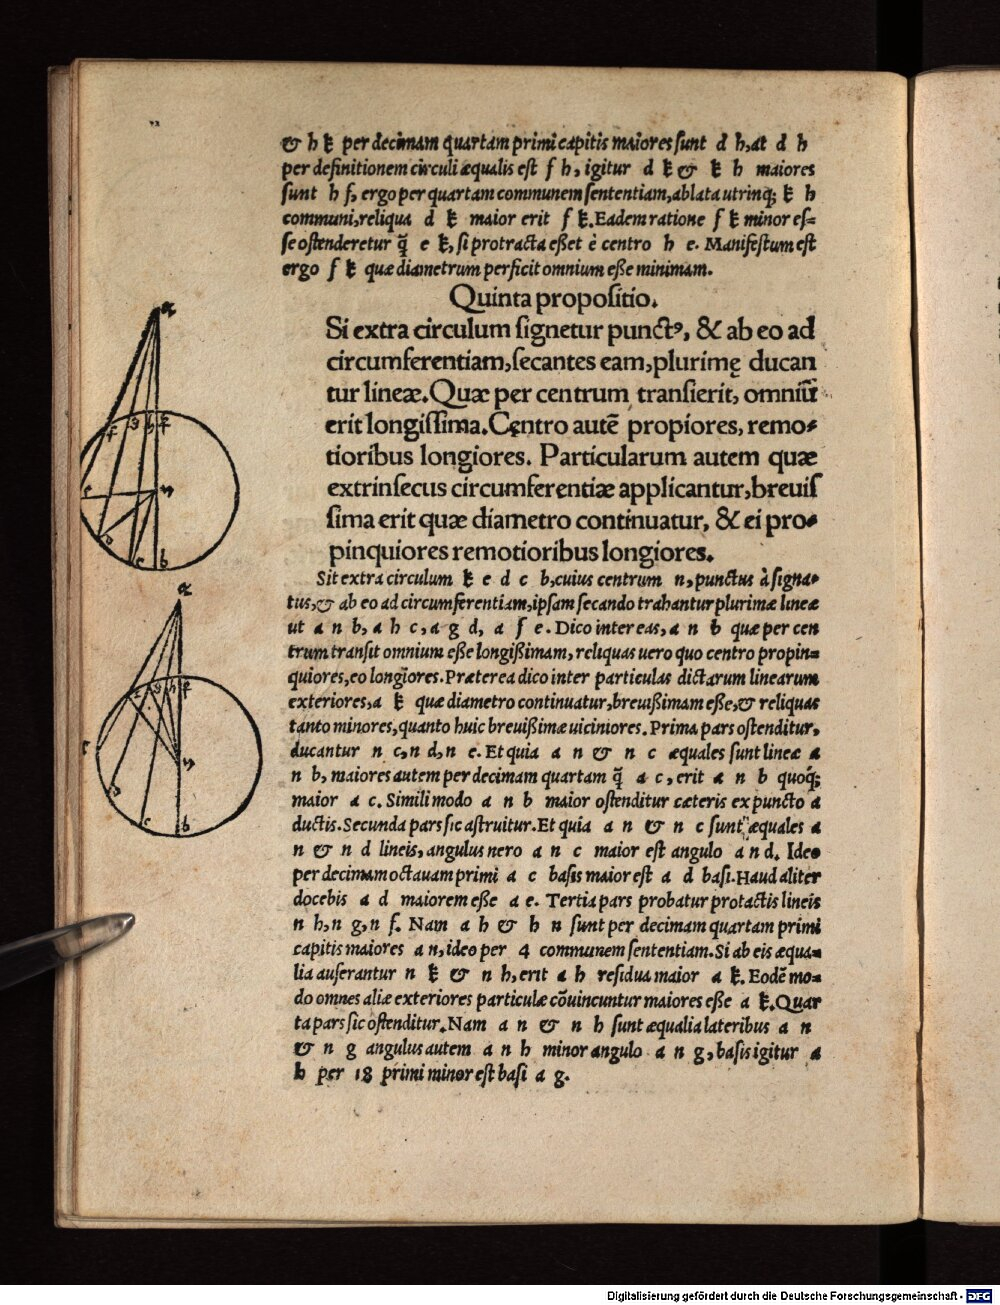 & h k per decimam quartam primi capitis maiores sunt d h, at d h
per definitionem circuli æqualis est f h, igitur d k & k h maiores
sunt h f, ergo per quartam communem sententiam, ablata utrinq; k h
communi, reliqua d k maior erit f k. Eadem ratione f k minor es=
se ostenderetur q̃ e k, si protracta eßet è centro h e. Manifestum est
ergo f k quæ diametrum perficit omnium eße minimam.
Quinta propositio.
Si extra circulum signetur punctꝰ, & ab eo ad
circumferentiam, secantes eam, plurimę ducan
tur lineæ. Quæ per centrum transierit, omniũ
erit longissima. Centro autẽ propiores, remo-
tioribus longiores. Particularum autem quæ
extrinsecus circumferentiæ applicantur, breuis
sima erit quæ diametro continuatur, & ei pro-
pinquiores remotioribus longiores.
Sit extra circulum k e d c b, cuius centrum n, punctus à signa-
tus, & ab eo ad circumferentiam, ipsam secando trahantur plurimæ lineæ
ut a n b, a h c, a g d, a f e. Dico inter eas, a n b quæ per cen
trum transit omnium eße longißimam, reliquas uero quo centro propin=
quiores, eo longiores. Præterea dico inter particulas dictarum linearum
exteriores, a k quæ diametro continuatur, breuißimam eße, & reliquas
tanto minores, quanto huic breuißimæ uiciniores. Prima pars ostenditur,
ducantur n c, n d, n e. Et quia a n & n c æquales sunt lineæ a
n b, maiores autem per decimam quartam q̃ a c, erit a n b quoq;
maior a c. Simili modo a n b maior ostenditur cæteris ex puncto a
ductis. Secunda pars sic astruitur. Et quia a n & n c sunt æquales a
n & n d lineis, angulus nero a n c maior est angulo a n d. Ideo
per decimam octauam primi a c basis maior est a d basi. Haud aliter
docebis a d maiorem eße a e. Tertia pars probatur protactis lineis
n h, n g, n f. Nam a h & h n sunt per decimam quartam primi
capitis maiores a n, ideo per 4 communem sententiam. Si ab eis æqua=
lia auferantur n k & n h, erit a h residua maior a k. Eodẽ mo=
do omnes aliæ exteriores particulæ cõuincuntur maiores eße a k. Quar
ta pars sic ostenditur. Nam a n & n h sunt æqualia lateribus a n
& n g angulus autem a n h minor angulo a n g, basis igitur a
h per 18 primi minor est basi a g.
a
f g h k
e n
d c b
a
f g h k
e n
d c b
Digitalisierung gefördert durch die Deutsche Forschungsgemeinschaft - DFG